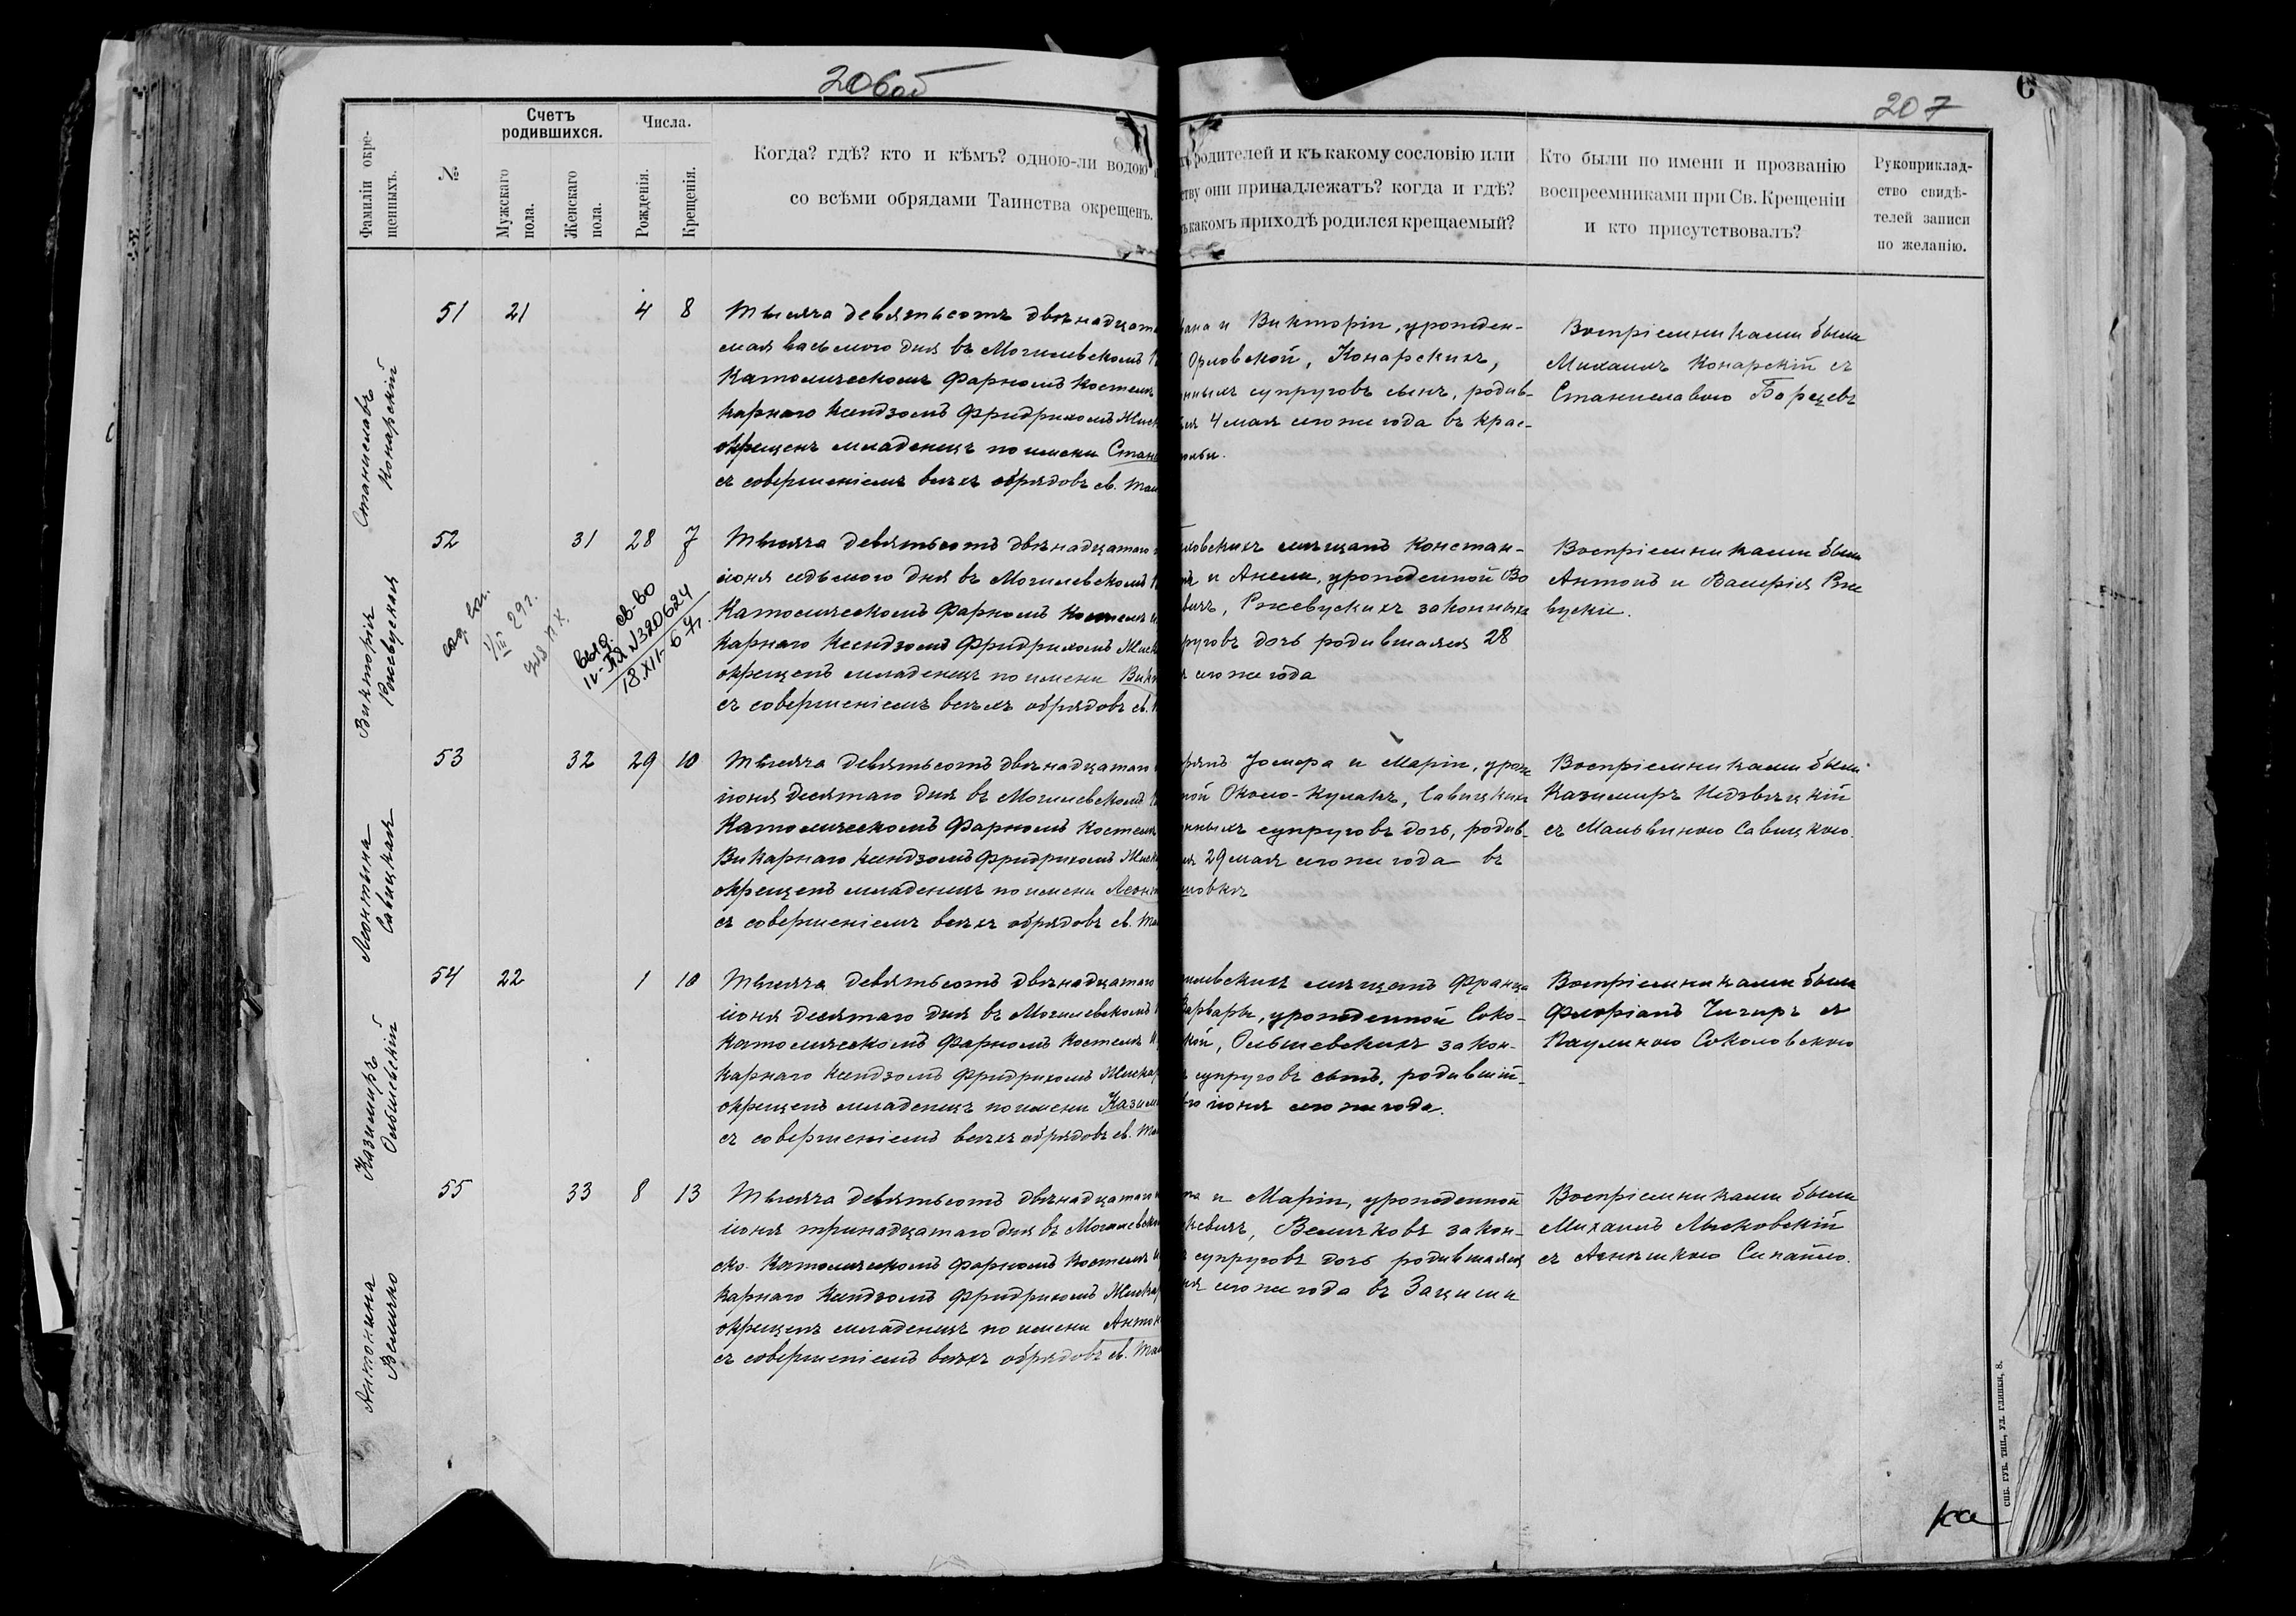 206об
207
Фамиліи окре-
щенныхъ.
№
Счетъ
родившихся.
Мужскаго
пола.
Женскаго
пола.
Числа.
Рожденія.
Крещенія.
Когда? гдѣ? кто и кѣмъ? одною-ли водою
со всѣми обрядами Таинства окрещенъ.
родителей и къ какому сословію или
ству они принадлежатъ? когда и гдѣ?
какомъ приходѣ родился крещаемый?
Кто были по имени и прозванію
воспреемниками при Св. Крещеніи
и кто присутствовалъ?
Рукоприклад-
ство свидѣ-
телей записи
по желанію.
Станиславъ
Конарскій
51 21 4 8
Тысяча девятьсотъ двѣнадцат
мая восьмого дня въ Могилевскомъ
Католическомъ Фарномъ Костелѣ
карнаго Ксендзомъ Фридрихомъ
окрещенъ младенецъ по имени Стани
съ совершеніемъ всѣхъ обрядовъ св. Таи
и Викторіи, урожден-
Орловской, Конарскихъ,
нныхъ супруговъ сынъ, родив-
4 мая сего же года въ Крас-
Воспріемниками были
Михаилъ Конарскій съ
Станиславою Борщевъ
Викторія
Ржевуская
52 31 28 7
выд. св-во
II-ПЯ №320624
18.XII-67г.
1/III 29г.
Тысяча девятьсотъ двѣнадцатаго
іюня седьмого дня въ Могилевскомъ
Католическомъ Фарномъ Костелѣ
карнаго Ксендзомъ Фридрихомъ
окрещенъ младенецъ по имени Вик
съ совершеніемъ всѣхъ обрядовъ св.
левскихъ мѣщанъ Констан-
и Анели, урожденной Во
вичъ, Ржевускихъ законныхъ
руговъ дочь родившаяся 28
сего же года
Воспріемниками были
Антонъ и Валерія Рже
вускіе.
Леонтына
Савицкая
53 32 29 10
Тысяча девятьсотъ двѣнадцатаго
іюня десятаго дня въ Могилевскомъ
Католическомъ Фарномъ Костелѣ
Викарнаго Ксендзомъ Фридрихомъ
окрещенъ младенецъ по имени Леонт
съ совершеніемъ всѣхъ обрядовъ св. Та
рянъ Іосифа и Маріи, урож
ной Около-Кулакъ, Савицкихъ
нныхъ супруговъ дочь, родив-
29 мая сего же года въ
Воспріемниками были
Казимиръ Недзвѣцкій
съ Мальвиною Савицкою.
Казимиръ
Ольшевскій
54 22 1 10
Тысяча девятьсотъ двѣнадцатаго
іюня десятаго дня въ Могилевскомъ
Католическомъ Фарномъ Костелѣ
карнаго Ксендзомъ Фридрихомъ
окрещенъ младенецъ по имени Казим
съ совершеніемъ всѣхъ обрядовъ св. Та
левскихъ мѣщанъ Франца
Варвары, урожденной Соко-
кой, Ольшевскихъ закон-
супруговъ сынъ, родившій-
го іюня сего же года.
Воспріемниками были
Флоріанъ Чигиръ съ
Паулиною Соколовскою
Антонина
Величко
55 33 8 13
Тысяча девятьсотъ двѣнадцатаго
іюня тринадцатаго дня въ Могилевском
ско-Католическомъ Фарномъ Костелѣ
карнаго Ксендзомъ Фридрихомъ
окрещенъ младенецъ по имени Антон
съ совершеніемъ всѣхъ обрядовъ св. Та
и Маріи, урожденной
кевичъ, Величковъ закон-
супруговъ дочь родившаяся
сего же года въ Зацишы
Воспріемниками были
Михаилъ Лысковскій
съ Агнешкою Сипайло.
СПБ. ГУБ. ТИП., УЛ. ГЛИНКИ, 8.